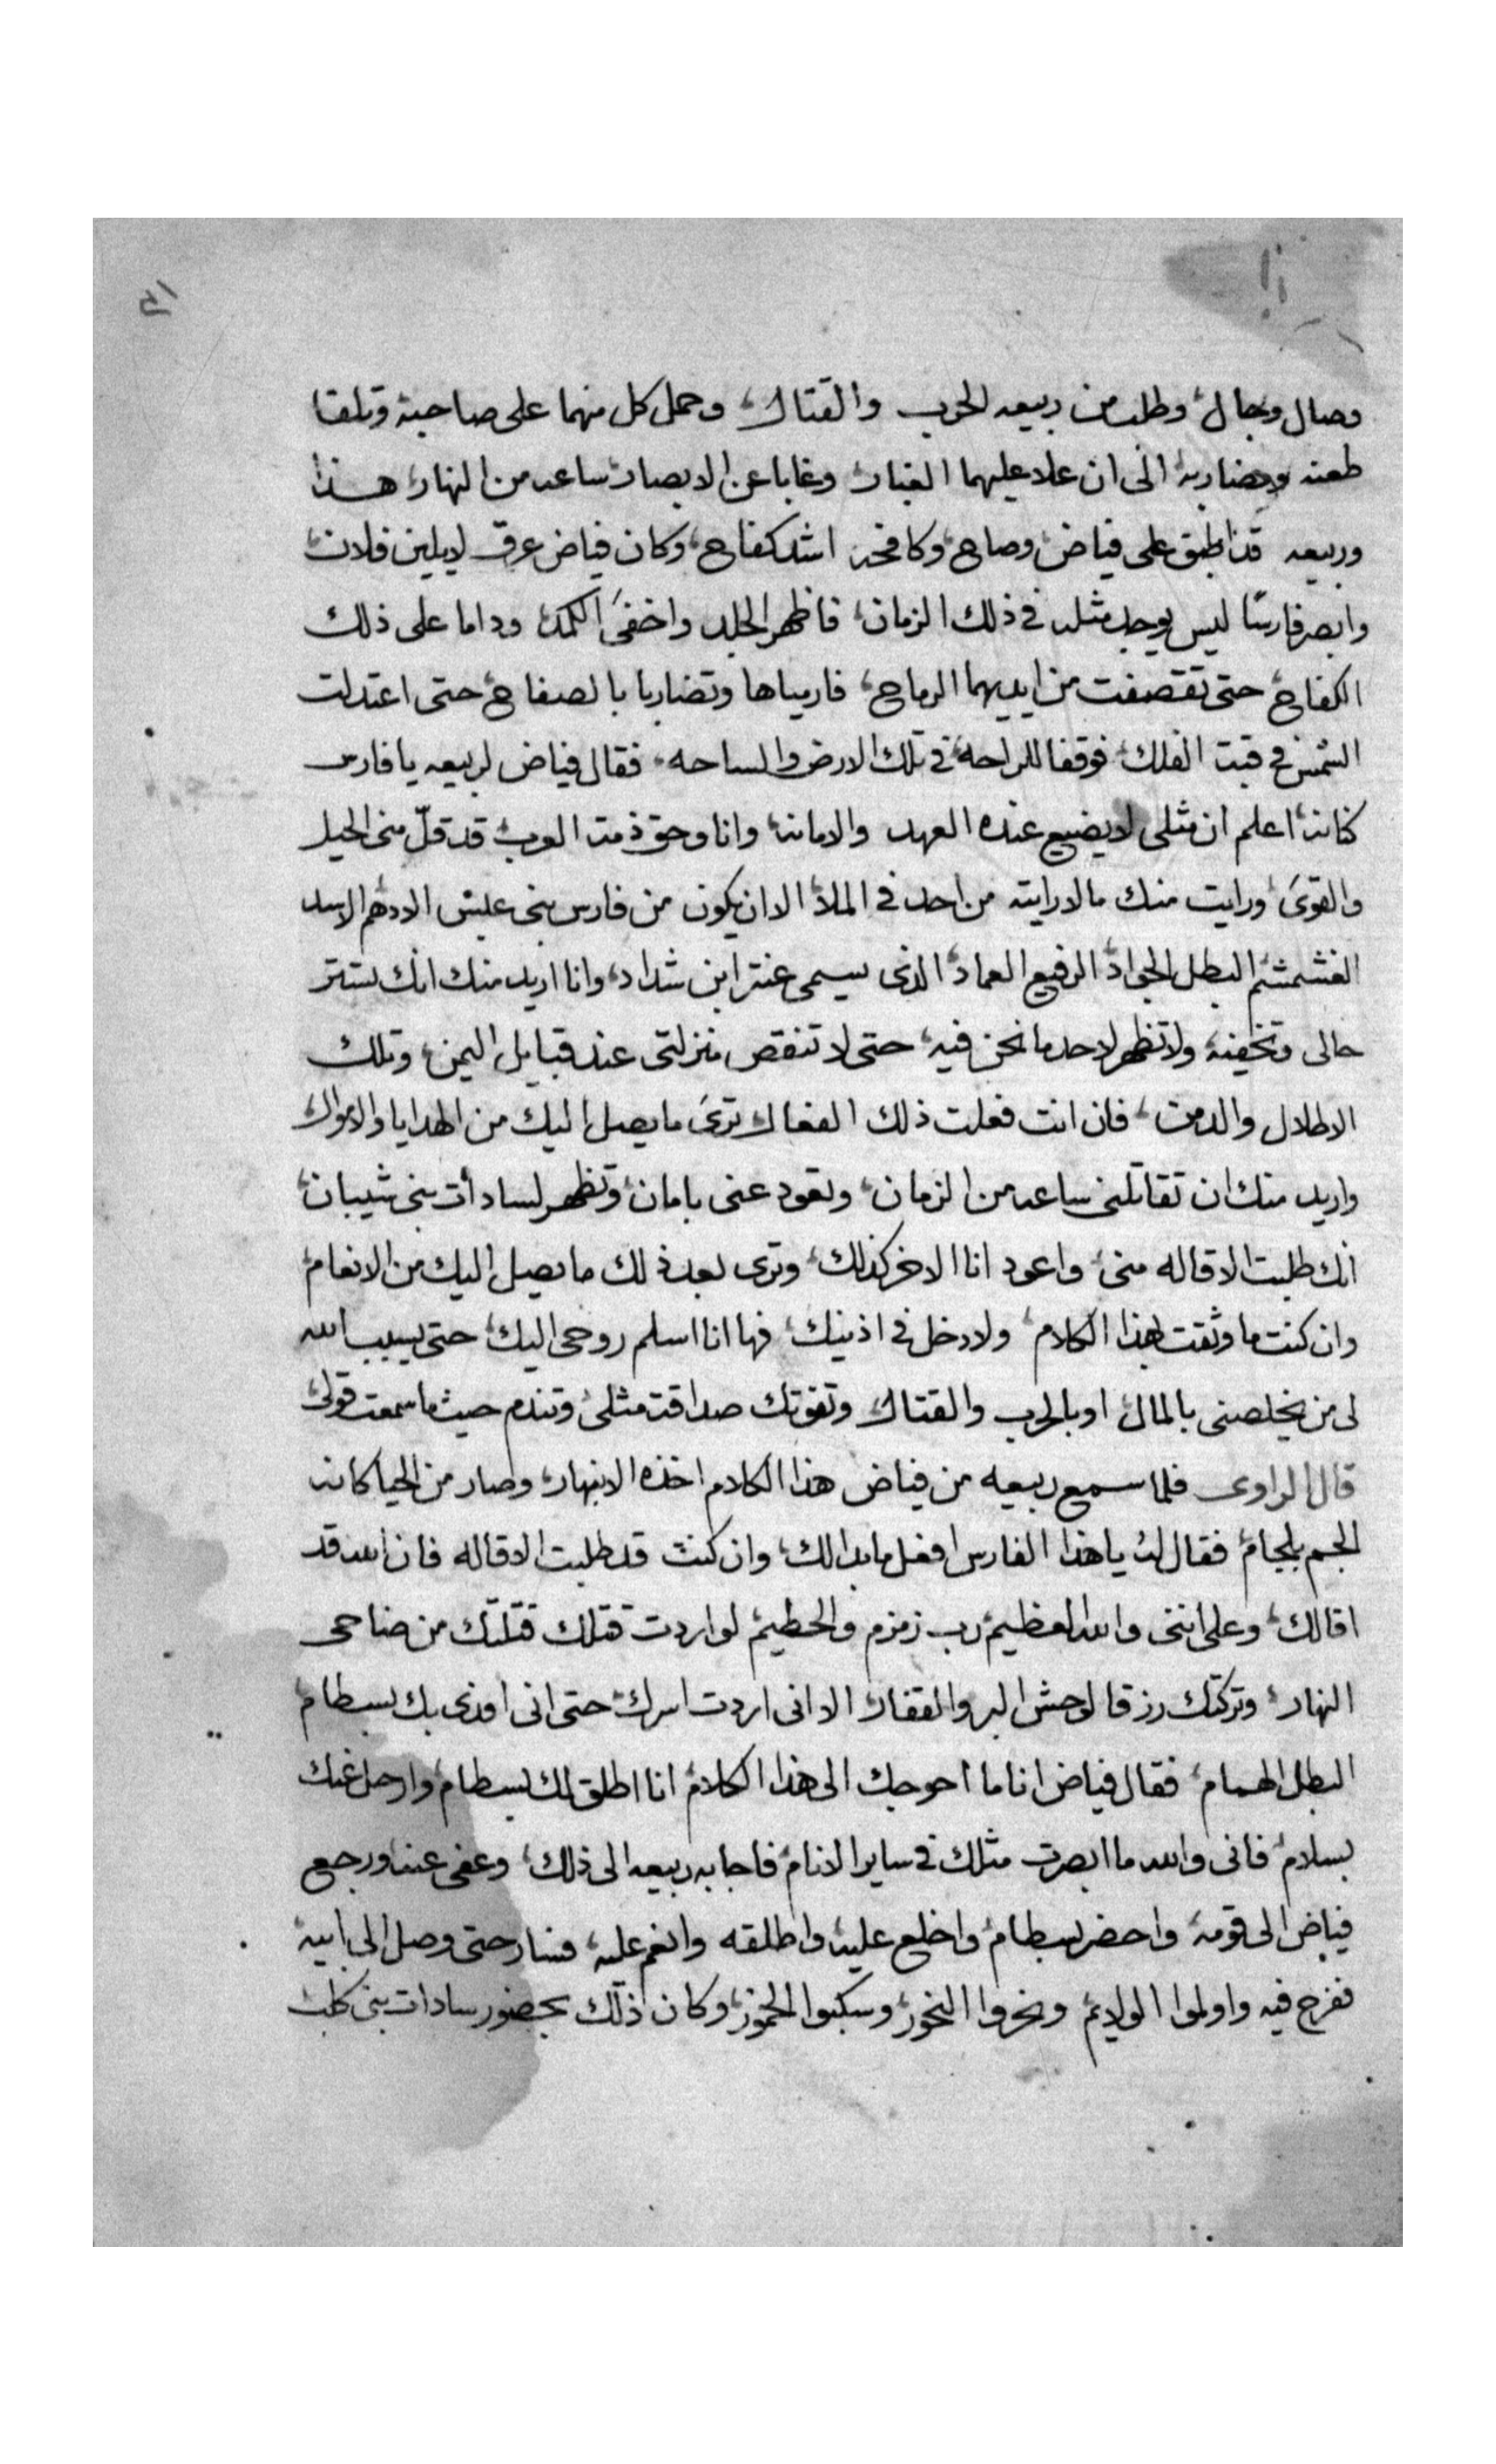 وصال وجال وطلب من ربيعه الحرب والقتال وحمل كل منهما على صاحبه وتلقا
طعنه ومضاربه الى ان علا عليهما الغبار وغابا عن الابصار ساعه من النهار هذا
وربيعه قد اطبق على فياض وصاح وكافحه اشد كفاح وكان فياض عرق لا يلين فلان
وابصر فارسًا ليس يوجد مثله فى ذلك الزمان فاظهر الجلد واخفىَ الكمد وداما على ذلك
الكفاح حتى تقصفت من ايديهما الرماح فارمياها وتضاربا بالصفاح حتى اعتدلت
الشمس فى قبت الفلك فوقفا للراحه فى تلك الارض والساحه فقال فياض لربيعه يا فارس
كنانه اعلم ان مثلى لا يضيع عنده العهد والامانه وانا وحق ذمت العرب قد قلّ منى الحيل
والقوىَ ورايت منك مالا رايته من احد فى الملا الا ان يكون من فارس بنى عبس الادهم الاسد
الغشمشم البطل الجواد الرفيع العماد الذى يسمى عنتر ابن شداد وانا اريد منك انك تستتر
حالى وتخفيه ولا تظهر لاحد ما نحن فيه حتى لا تنقص منزلتى عند قبايل اليمن وتلك
الاطلال والدمن فان انت فعلت ذلك الفعال ترىَ ما يصل اليك من الهدايا والاموال
واريد منك ان تقاتلنى ساعه من الزمان وتعود عنى بامان وتظهر لسادات بنى شيبان
انك طلبت الاقاله منى واعود انا الاخر كذلك وترى بعد ذلك ما يصل اليك من الانعام
وان كنت ما وثقت بهذا الكلام ولا دخل فى اذنيك فها انا اسلم روحى اليك حتى يسبب الله
لى من يخلصنى بالمال او بالحرب والقتال وتفوتك صداقت مثلى وتندم حيث ما سمعت قولى
قال الراوى فلما سمع ربيعه من فياض هذا الكلام اخذه الانبهار وصار من الحيا كانه
الجم بلجام فقال له يا هذا الفارس افعل ما بدالك وان كنت قد طلبت الاقاله فان الله قد
اقالك وعلى اننى والله العظيم رب زمزم والحطيم لو اردت قتلك قتلتك من ضاحى
النهار وتركتك رزقا لوحش البر والقفار الا انى اردت اسرك حتى انى افدى بك بسطام
البطل الهمام فقال فياض انا ما احوجك الى هذا الكلام انا اطلق لك بسطام وارحل عنك
بسلام فانى والله ما ابصرت مثلك فى ساير الانام فاجابه ربيعه الى ذلك وعفى عنه ورجع
فياض الى قومه واحضر بسطام واخلع عليه واطلقه وانعم عليه فسار حتى وصل الى ابيه
ففرح فيه واولموا الولايم وبخروا البخور وسكبوا الخمور وكان ذلك بحضور سادات بنى كلب